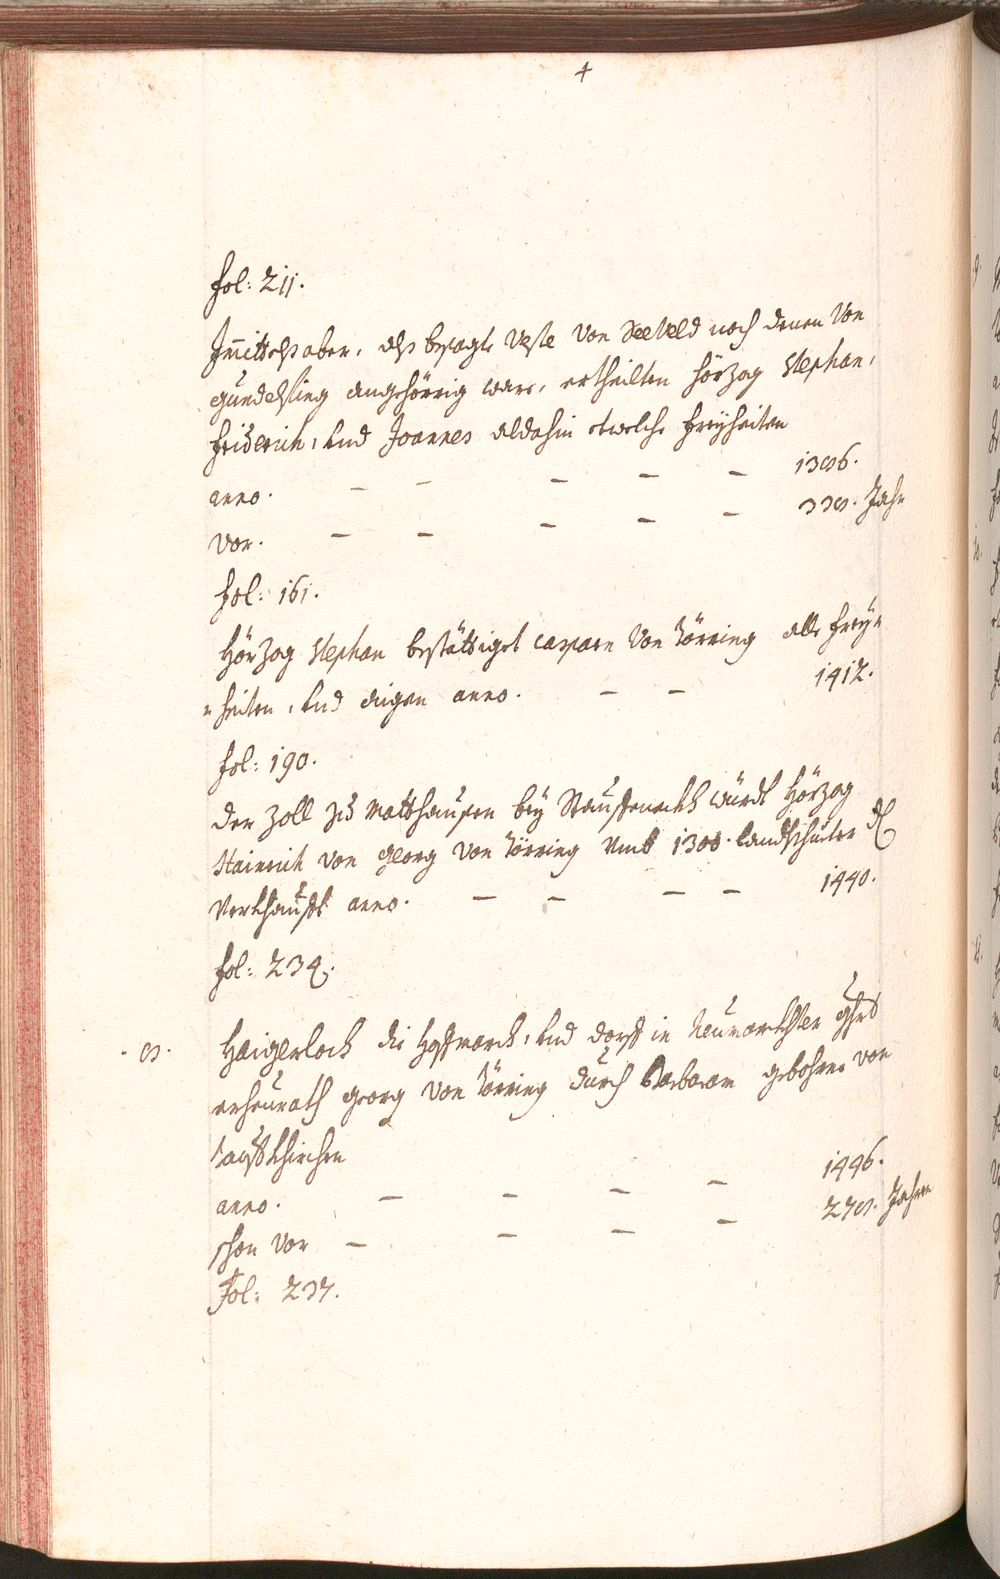 4
fol: 211.
Jmittelß aber, alß besagte Veste von Seeveld noch denen von
Gundelfing angehörig ware, ertheilten Hörzog Stephan,
Friderich, und Joannes aldahin etwelche Freyheiten
anno. — — — — — 1386.
vor. — — — — — 338. Jahr
fol: 161.
Hörzog Stephan bestättiget Casparn von Törring alle Frey-
-heiten, und aigen anno. — — 1412.
fol: 190.
Der Zoll zu Matthausen bey Stauffenekh würdt Hörzog
Hainrich von Georg von Törring umb 1300. Landtshueter dl
verkhaufft anno. — — — — 1440.
fol: 234.
. 8. Haigerloch die Hoffmarch, und Dorff in Neumarkhter Ghrt
erheurath Georg von Törring durch Barbaram gebohrne von
Tauffkhirchen
anno. — — — — 1446.
schon vor — — — — 278. Jahren
Fol: 237.